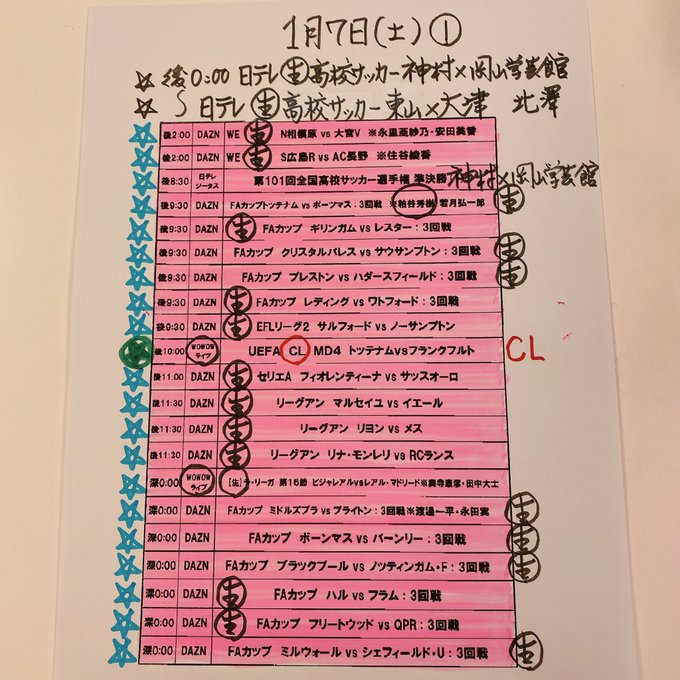 1月7日(土) ①
☆ 後0:00 日テレ 生 高校サッカー 神村×岡山学芸館
☆ 〜 日テレ 生 高校サッカー 東山×大津 北澤
後2:00 DAZN WE 生 N相模原 vs 大宮V ※永里亜紗乃・安田美香
後2:00 DAZN WE 生 S広島R vs AC長野 ※住谷綾香
後8:30 日テレジータス 第101回全国高校サッカー選手権 準決勝 神村×岡山学芸館
後9:30 DAZN FAカップトッテナム vs ポーツマス:3回戦 ※粕谷秀樹 若月弘一郎 生
後9:30 DAZN 生 FAカップ ギリンガム vs レスター:3回戦
後9:30 DAZN FAカップ クリスタルパレス vs サウサンプトン:3回戦 生
後9:30 DAZN FAカップ プレストン vs ハダースフィールド:3回戦 生
後9:30 DAZN 生 FAカップ レディング vs ワトフォード:3回戦
後9:30 DAZN 生 EFLリーグ2 サルフォード vs ノーサンプトン
後10:00 WOWOWライブ UEFA CL MD4 トッテナムvsフランクフルト CL
後11:00 DAZN 生 セリエA フィオレンティーナ vs サッスオーロ
後11:30 DAZN 生 リーグアン マルセイユ vs イエール
後11:30 DAZN 生 リーグアン リヨン vs メス
後11:30 DAZN 生 リーグアン リナ・モンレリ vs RCランス
深0:00 WOWOWライブ [生]ラ・リーガ 第16節 ビジャレアルvsレアル・マドリード※奥寺康彦・田中大士
深0:00 DAZN FAカップ ミドルズブラ vs ブライトン:3回戦※渡邉一平・永田実 生
深0:00 DAZN FAカップ ボーンマス vs バーンリー:3回戦 生
深0:00 DAZN FAカップ ブラックプール vs ノッティンガム・F:3回戦 生
深0:00 DAZN 生 FAカップ ハル vs フラム:3回戦
深0:00 DAZN 生 FAカップ フリートウッド vs QPR:3回戦
深0:00 DAZN FAカップ ミルウォール vs シェフィールド・U:3回戦 生